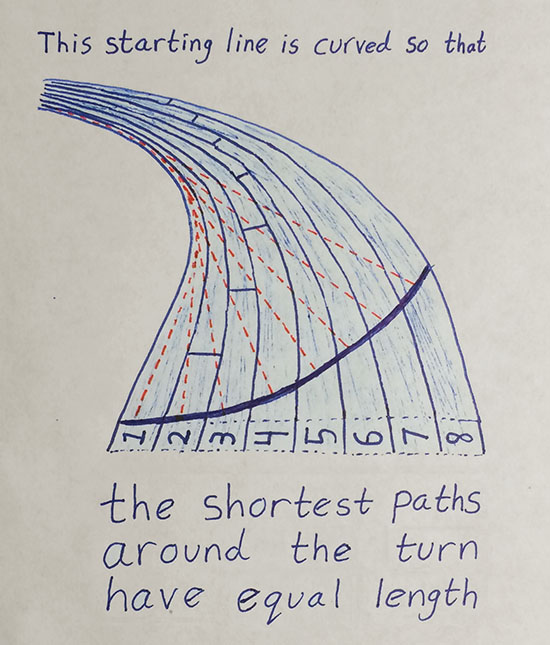 This starting line is curved so that
1 2 3 4 5 6 7 8
the shortest paths
around the turn
have equal length